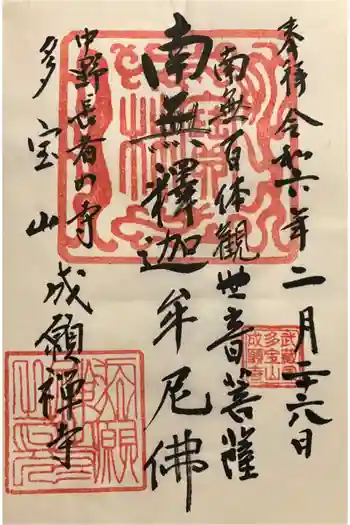 奉拝 令和六年 二月二十八日
南無百体観世音菩薩
南無釋迦牟尼佛
中野長者の寺
多宝山 成願禅寺
武蔵国
多宝山
成願寺